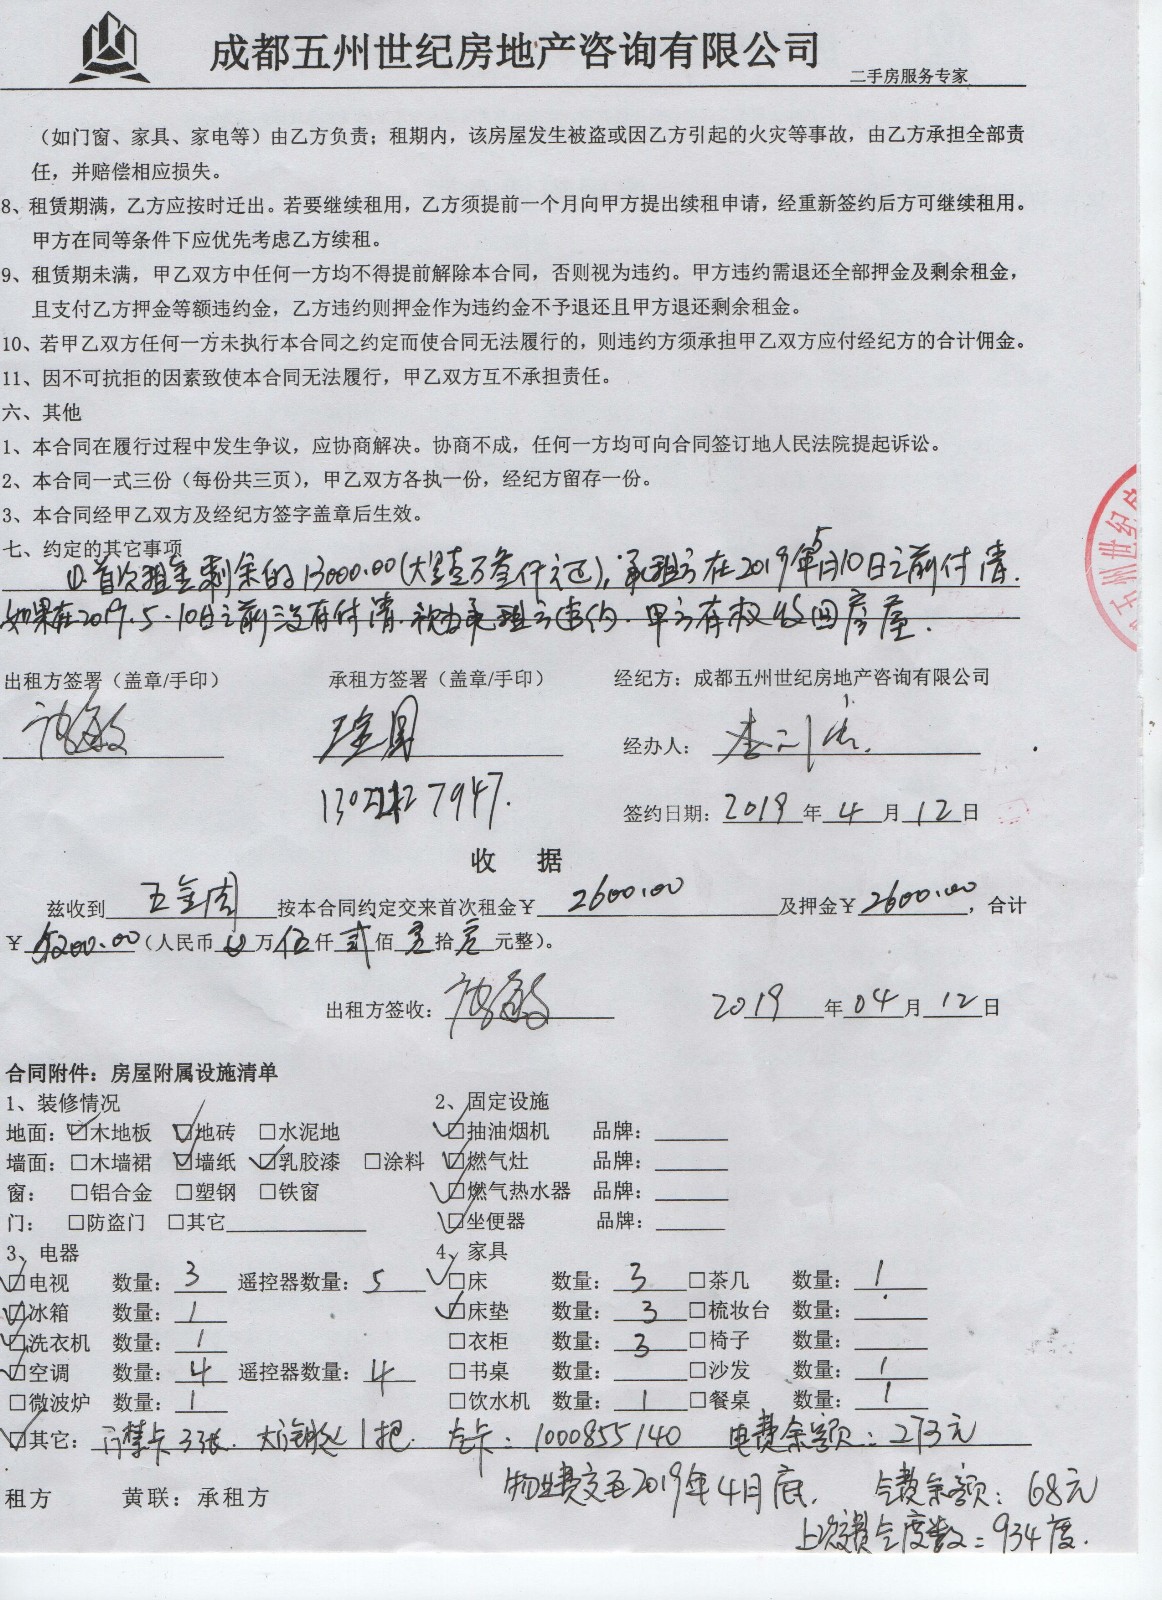 成都五州世纪房地产咨询有限公司
二手房服务专家
（如门窗、家具、家电等）由乙方负责；租期内，该房屋发生被盗或因乙方引起的火灾等事故，由乙方承担全部责
任，并赔偿相应损失。
8、租赁期满，乙方应按时迁出。若要继续租用，乙方须提前一个月向甲方提出续租申请，经重新签约后方可继续租用。
甲方在同等条件下应优先考虑乙方续租。
9、租赁期未满，甲乙双方中任何一方均不得提前解除本合同，否则视为违约。甲方违约需退还全部押金及剩余租金，
且支付乙方押金等额违约金，乙方违约则押金作为违约金不予退还且甲方退还剩余租金。
10、若甲乙双方任何一方未执行本合同之约定而使合同无法履行的，则违约方须承担甲乙双方应付经纪方的合计佣金。
11、因不可抗拒的因素致使本合同无法履行，甲乙双方互不承担责任。
六、其他
1、本合同在履行过程中发生争议，应协商解决。协商不成，任何一方均可向合同签订地人民法院提起诉讼。
2、本合同一式三份（每份共三页），甲乙双方各执一份，经纪方留存一份。
3、本合同经甲乙双方及经纪方签字盖章后生效。
七、约定的其它事项
①首次租金剩余的13000.00(大写壹万叁仟元正),承租方在2019年5月10日之前付清.
如果在2019.5.10日之前没有付清.视为承租方违约.甲方有权收回房屋.
出租方签署（盖章/手印） 承租方签署（盖章/手印） 经纪方：成都五州世纪房地产咨询有限公司
经办人：
7947.
签约日期：2019年4月12日
收 据
兹收到 按本合同约定交来首次租金￥2600.00及押金￥2600.00，合计
￥5200.00（人民币 万伍仟贰佰零拾零元整）。
出租方签收： 2019年04月12日
合同附件：房屋附属设施清单
1、装修情况 2、固定设施
地面：☑木地板 ☑地砖 □水泥地 ☑抽油烟机 品牌：
墙面：□木墙裙 ☑墙纸 ☑乳胶漆 □涂料 ☑燃气灶 品牌：
窗： □铝合金 □塑钢 □铁窗 ☑燃气热水器 品牌：
门： □防盗门 □其它 ☑坐便器 品牌：
3、电器 4、家具
☑电视 数量：3 遥控器数量：5 ☑床 数量：3 □茶几 数量：1
☑冰箱 数量：1 ☑床垫 数量：3 □梳妆台 数量：
☑洗衣机 数量：1 □衣柜 数量：3 □椅子 数量：
☑空调 数量：4 遥控器数量：4 □书桌 数量： □沙发 数量：1
□微波炉 数量：1 □饮水机 数量：1 □餐桌 数量：1
☑其它：门禁卡3张.大门钥匙1把. 气卡：1000855140 电费余额：273元
租方 黄联：承租方 物业费交至2019年4月底. 气费余额：68元
上次交费气度数：934度.
州世纪房